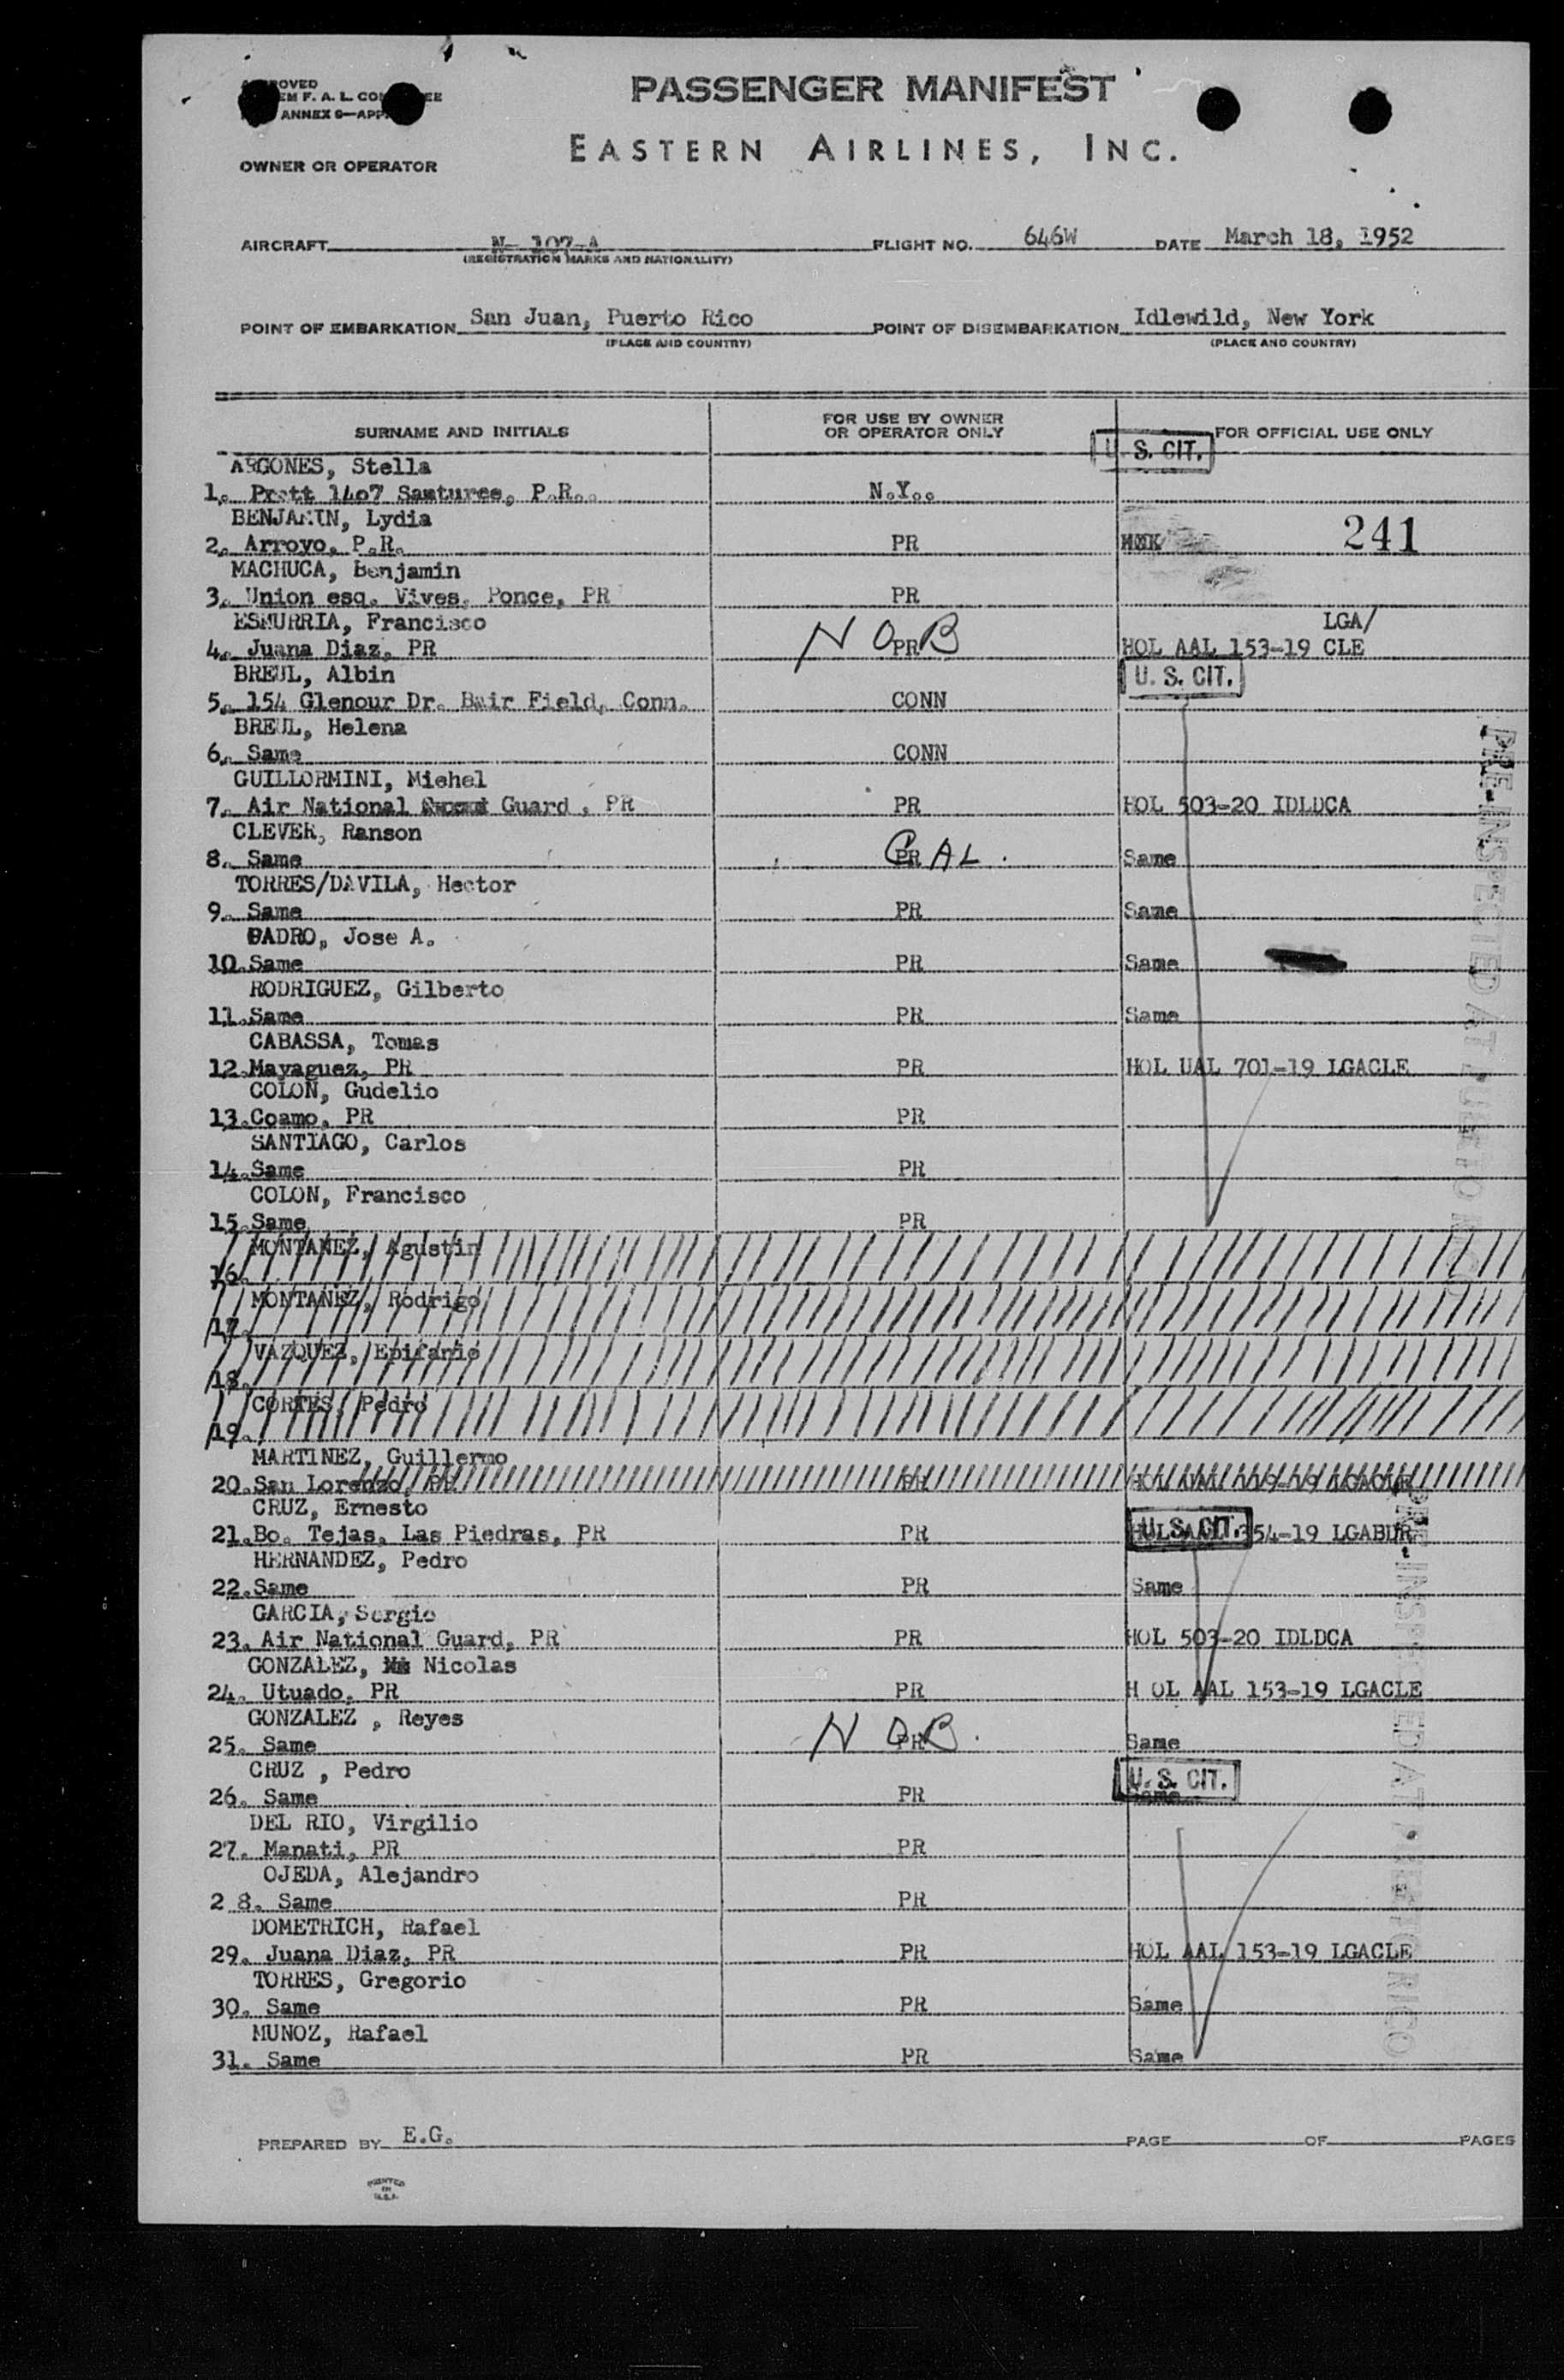 PASSENGER MANIFEST
EASTERN AIRLINES, INC.
OWNER OR OPERATOR
AIRCRAFT N- 107-A FLIGHT NO. 646W DATE March 18, 1952
(REGISTRATION MARKS AND NATIONALITY)
POINT OF EMBARKATION San Juan, Puerto Rico POINT OF DISEMBARKATION Idlewild, New York
(PLACE AND COUNTRY) (PLACE AND COUNTRY)
SURNAME AND INITIALS FOR USE BY OWNER OR OPERATOR ONLY FOR OFFICIAL USE ONLY
U. S. CIT.
ARGONES, Stella
1. Pratt 1407 Santurce, P.R. N.Y..
BENJAMIN, Lydia
2. Arroyo, P.R. PR 241
MACHUCA, Benjamin
3. Union esq. Vives, Ponce, PR PR
ESMURRIA, Francisco NOB LGA/
4. Juana Diaz, PR PR HOL AAL 153-19 CLE
BREUL, Albin U. S. CIT.
5. 154 Glenour Dr. Bair Field, Conn. CONN
BREUL, Helena
6. Same CONN
GUILLORMINI, Miehel
7. Air National Guard , PR PR HOL 503-20 IDLDCA
CLEVER, Ranson
8. Same PR CAL. Same
TORRES/DAVILA, Hector
9. Same PR Same
PADRO, Jose A.
10. Same PR Same
RODRIGUEZ, Gilberto
11. Same PR Same
CABASSA, Tomas
12. Mayaguez, PR PR HOL UAL 701-19 LGACLE
COLON, Gudelio
13. Coamo, PR PR
SANTIAGO, Carlos
14. Same PR
COLON, Francisco
15. Same PR
MONTANEZ, Agustin
16.
MONTANEZ, Rodrigo
17.
VAZQUEZ, Epifanio
18.
CORTES, Pedro
19.
MARTINEZ, Guillermo
20. San Lorenzo, PR PR HOL LGACLE
CRUZ, Ernesto U. S. CIT.
21. Bo. Tejas, Las Piedras, PR PR HOL AAL 354-19 LGABUR
HERNANDEZ, Pedro
22. Same PR Same
GARCIA, Sergio
23. Air National Guard, PR PR HOL 503-20 IDLDCA
GONZALEZ, Nicolas
24. Utuado, PR PR H OL AAL 153-19 LGACLE
GONZALEZ , Reyes NOB.
25. Same PR Same
CRUZ , Pedro U. S. CIT.
26. Same PR Same
DEL RIO, Virgilio
27. Manati, PR PR
OJEDA, Alejandro
2 8. Same PR
DOMETRICH, Rafael
29. Juana Diaz, PR PR HOL AAL 153-19 LGACLE
TORRES, Gregorio
30. Same PR Same
MUNOZ, Rafael
31. Same PR Same
PRE-INSPECTED AT PUERTO RICO
PRE-INSPECTED AT PUERTO RICO
PREPARED BY E.G. PAGE OF PAGES
PRINTED
IN
U.S.A.